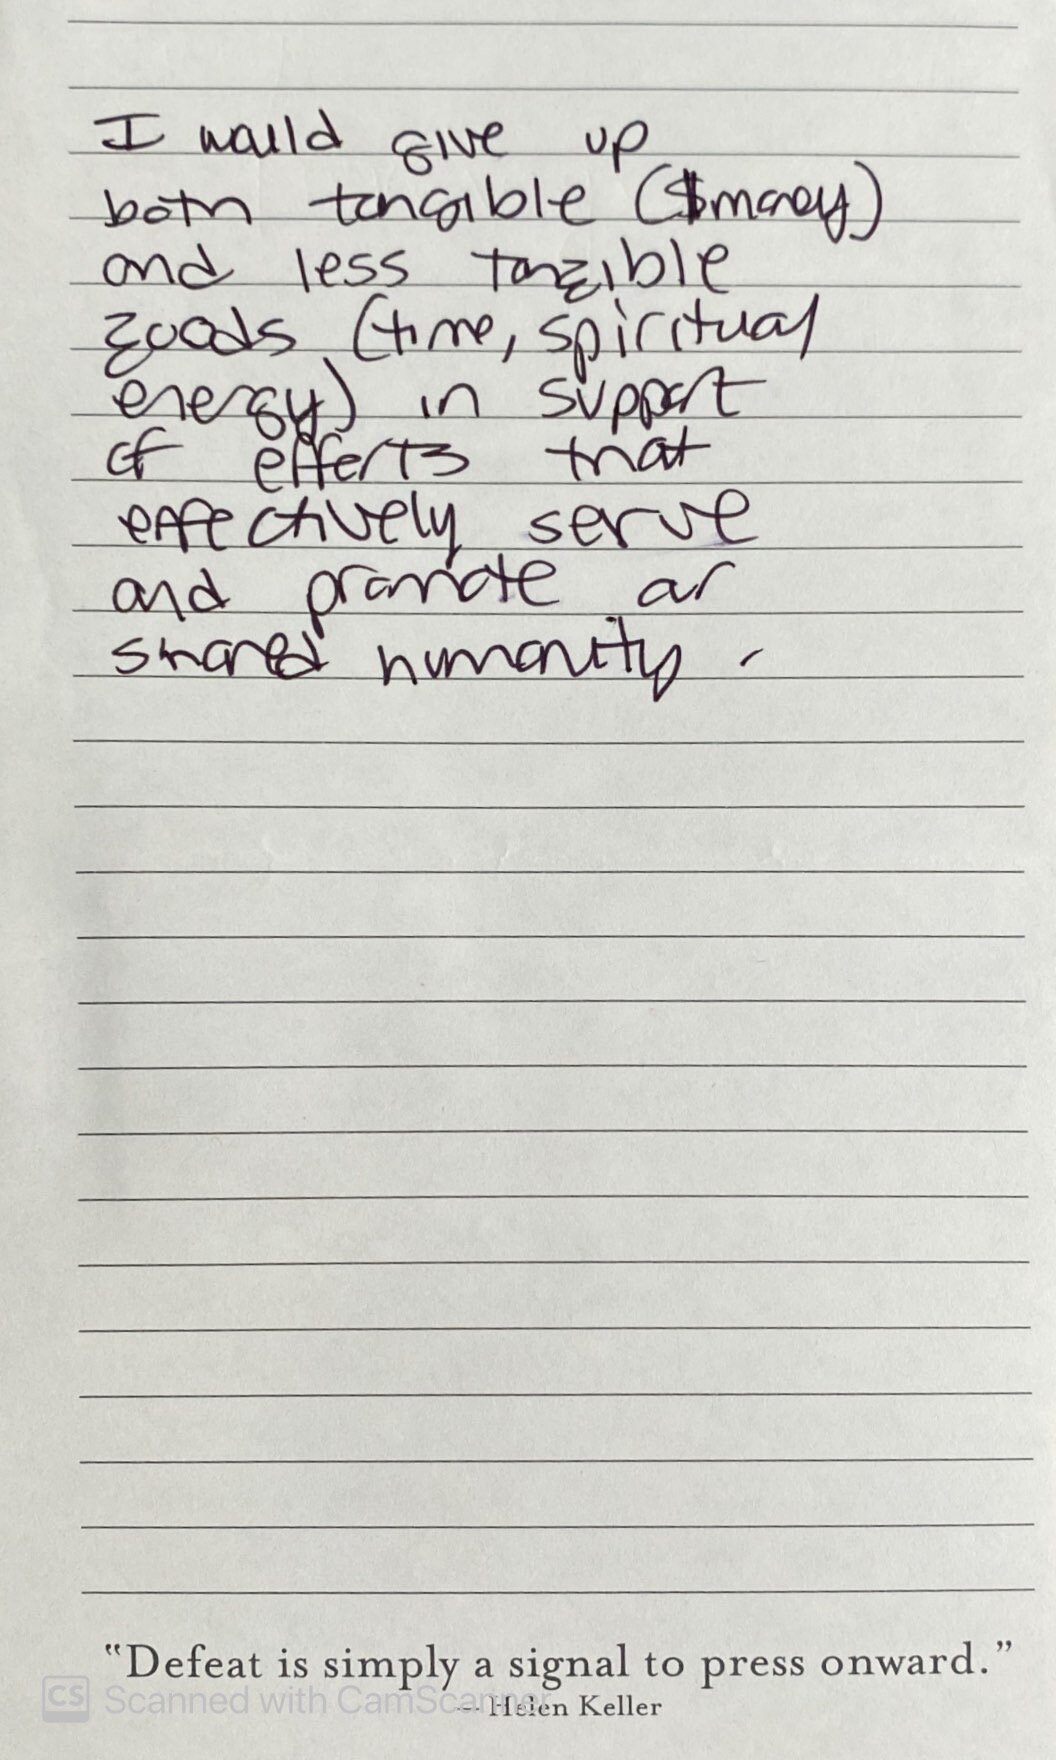 I would give up
both tangible ($money)
and less tangible
goods (time, spiritual
energy) in support
of efforts that
effectively serve
and promote our
shared humanity.
"Defeat is simply a signal to press onward."
— Helen Keller
CS Scanned with CamScanner